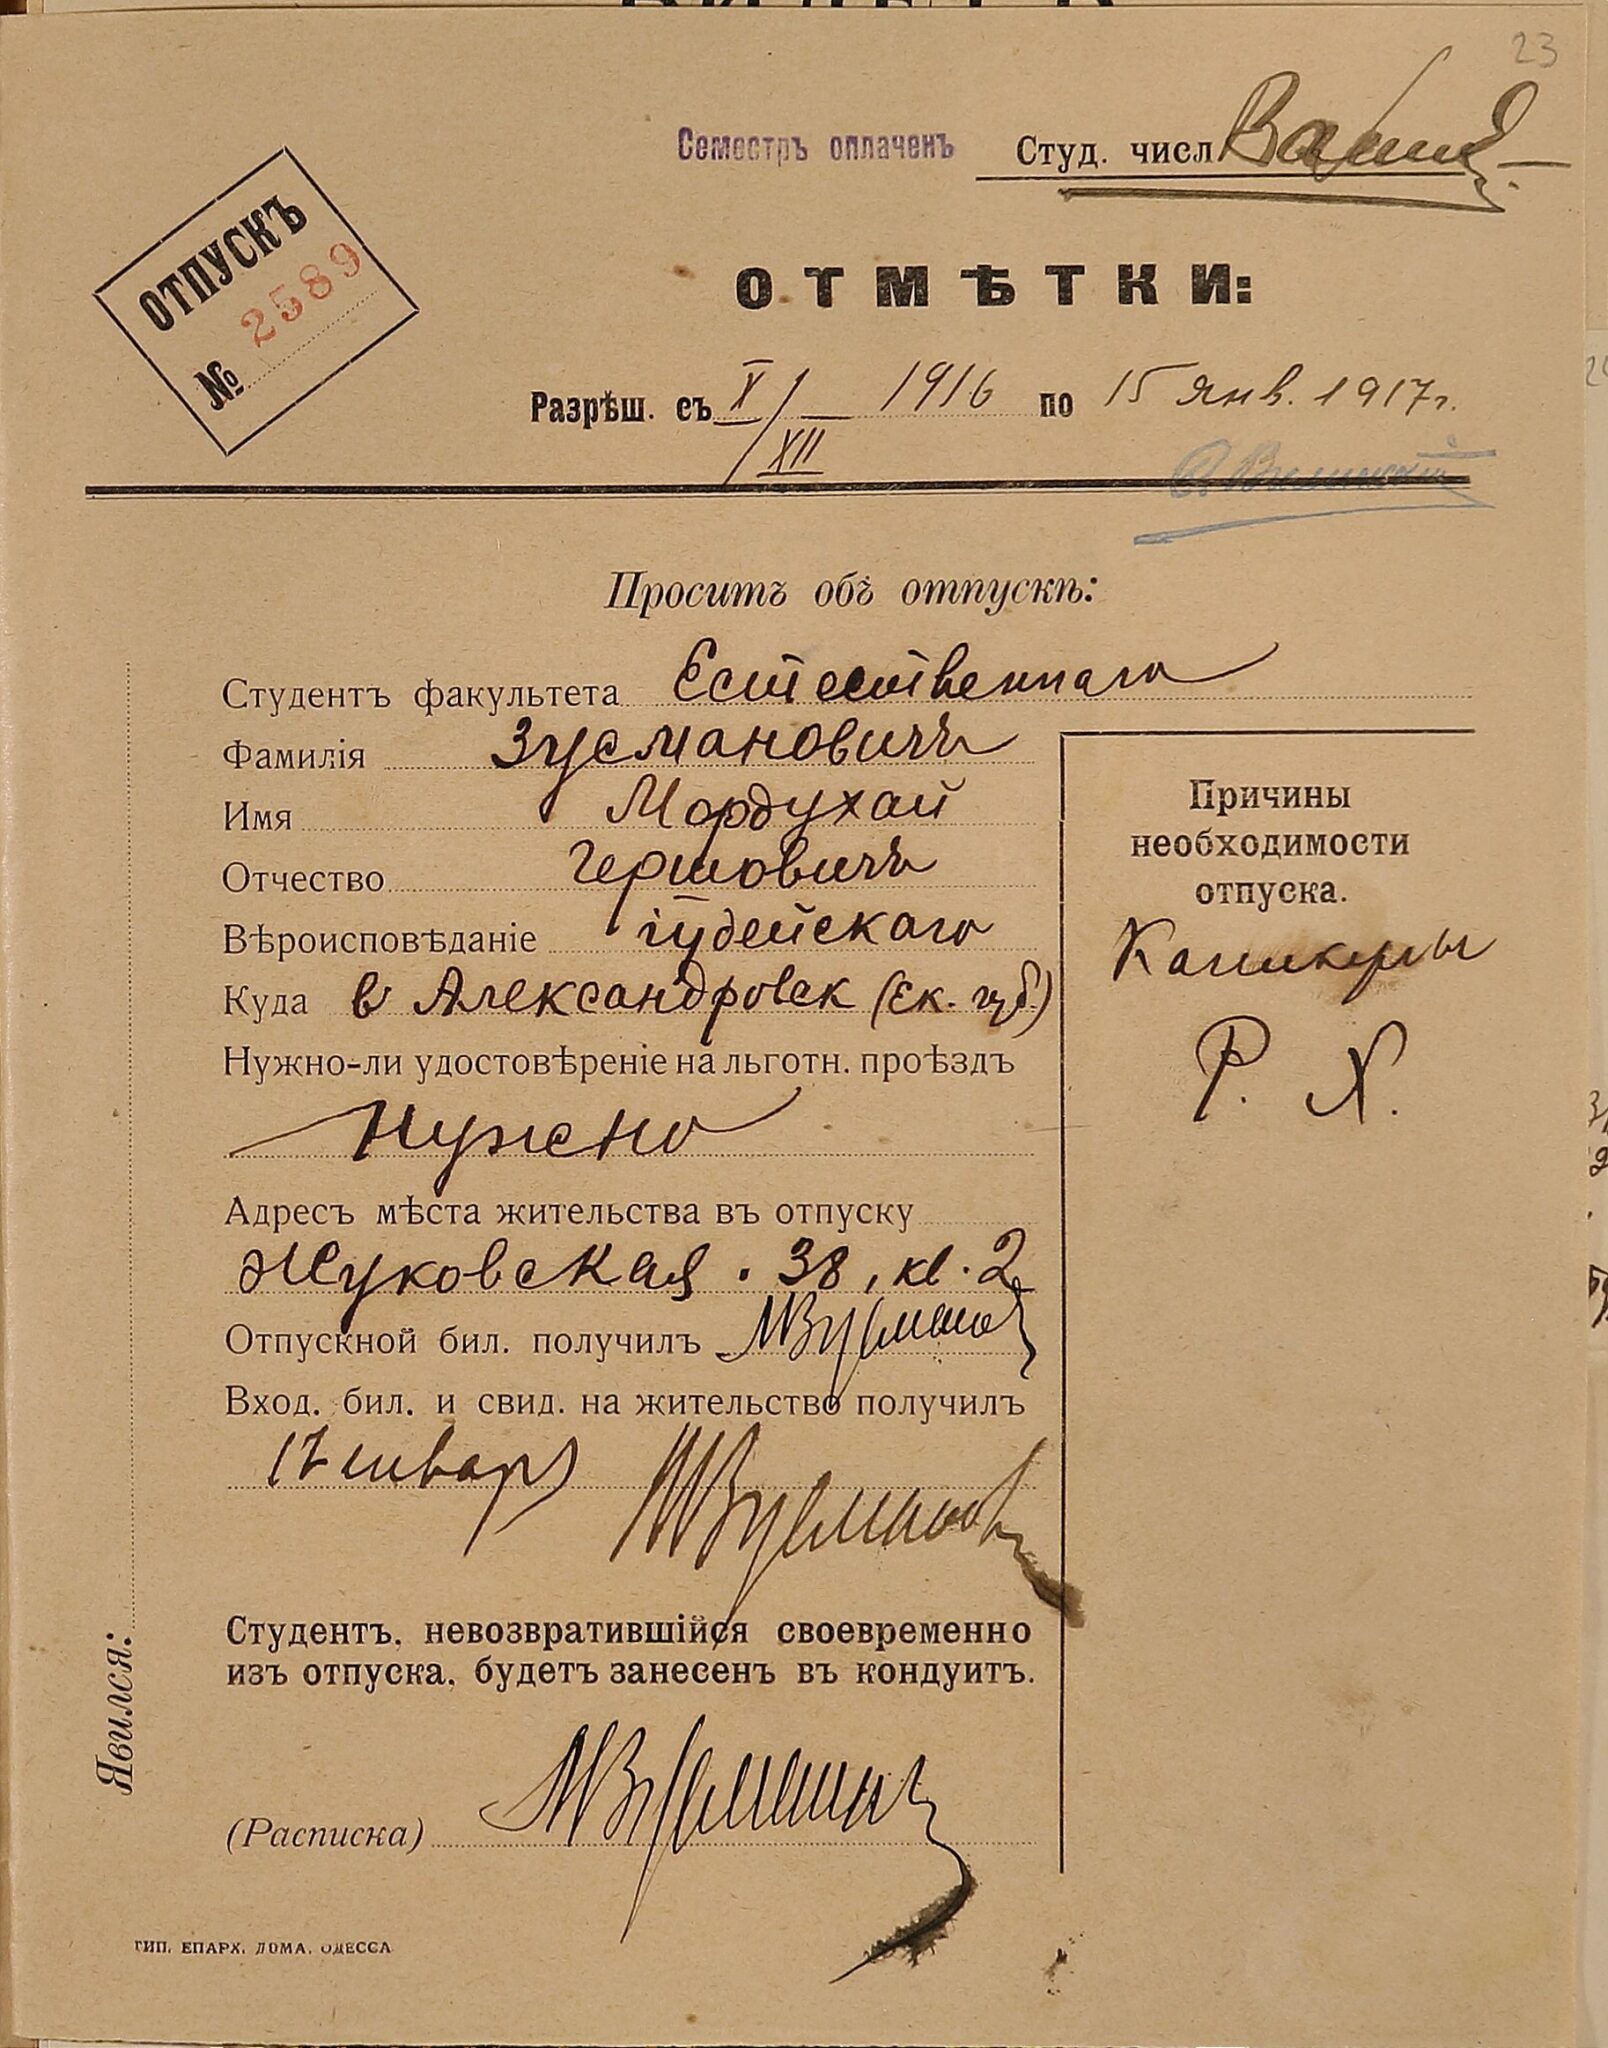 23
Семестръ оплаченъ Студ. числ.
ОТПУСКЪ
№ 2589
ОТМѢТКИ:
Разрѣш. съ X/XII 1916 по 15 янв. 1917 г.
Проситъ объ отпускѣ:
Студентъ факультета Естественнаго
Фамилія Зусмановичъ
Имя Мордухай
Отчество Гершовичъ
Вѣроисповѣданіе іудейскаго
Куда в Александровск (Ек. губ.)
Нужно-ли удостовѣреніе на льготн. проѣздъ
Нужно
Адресъ мѣста жительства въ отпуску
Жуковская . 38, кв. 2
Отпускной бил. получилъ МЗусманов
Вход. бил. и свид. на жительство получилъ
МЗусманов
Студентъ, невозвратившійся своевременно
изъ отпуска, будетъ занесенъ въ кондуитъ.
(Расписка)
Явился:
Причины
необходимости
отпуска.
Каникулы
Р. Х.
ТИП. ЕПАРХ. ДОМА. ОДЕССА